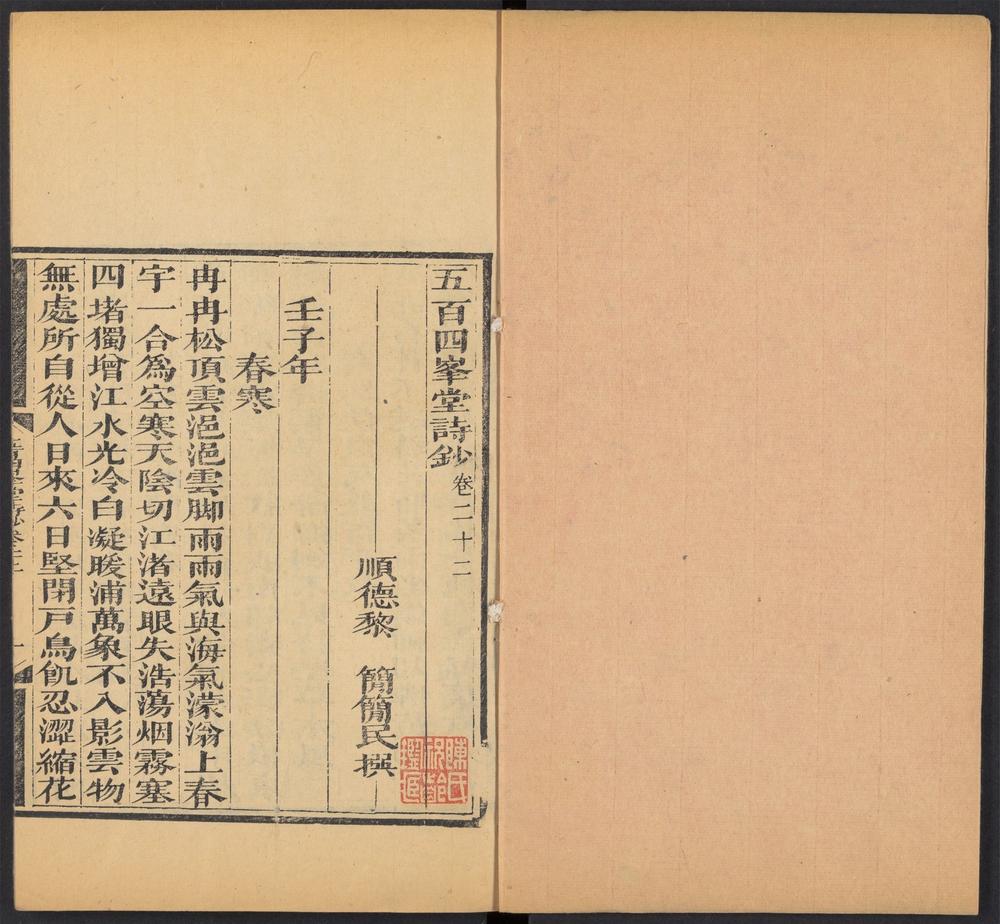 五百四峯堂詩鈔卷二十二
順德黎　簡簡民撰
壬子年
春寒
冉冉松頂雲浥浥雲脚雨雨氣與海氣濛滃上春
宇一合爲空寒天陰切江渚遠眼失浩蕩烟霧塞
四堵獨增江水光冷白凝暖浦萬象不入影雲物
無處所自從人日來六日堅閉戸鳥飢忍澀縮花